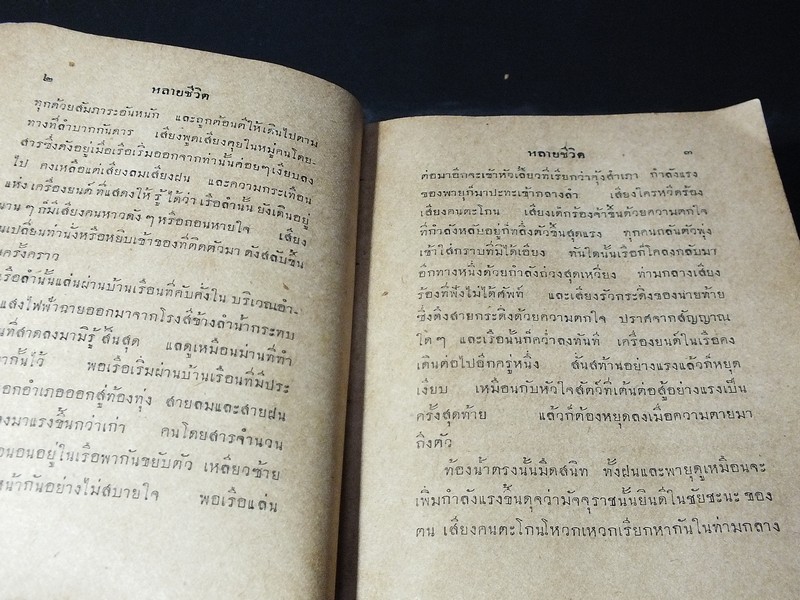 ๒
หลายชีวิต
ทุกด้วยสัมภาระอันหนัก และถูกต้อนตีให้เดินไปตาม
ทางที่ลำบากกันดาร เสียงพูดเสียงคุยในหมู่คนโดย-
สารซึ่งดังอยู่เมื่อเรือเริ่มออกจากท่านั้นค่อยๆ เงียบลง
ไป คงเหลือแต่เสียงลมเสียงฝน และความกระเทือน
แห่งเครื่องยนต์ ที่แสดงให้รู้ได้ว่า เรือลำนั้นยังเดินอยู่
นาน ๆ ก็มีเสียงคนหาวดัง ๆ หรือถอนหายใจ เสียง
นเปลี่ยนท่านั่งหรือหยิบเข้าของที่ติดตัวมา ดังสลับขึ้น
นครั้งคราว
เรือลำนั้นแล่นผ่านบ้านเรือนที่คับคั่งใน บริเวณอำ-
แสงไฟฟ้าฉายออกมาจากโรงสีข้างลำน้ำกระทบ
นที่สาดลงมามิรู้ สิ้นสุด แลดูเหมือนม่านที่ทำ
ากั้นไว้ พอเรือเริ่มผ่านบ้านเรือนที่มีประ
อกอำเภอออกสู่ท้องทุ่ง สายลมและสายฝน
งมาแรงขึ้นกว่าเก่า คนโดยสารจำนวน
งนอนอยู่ในเรือพากันขยับตัว เหลียวซ้าย
หน้ากันอย่างไม่สบายใจ พอเรือแล่น
หลายชีวิต
๓
ต่อมาอีกจะเข้าหัวเลี้ยวที่เรียกว่าคุ้งสำเภา กำลังแรง
ของพายุก็มาปะทะเข้ากลางลำ เสียงใครหวีดร้อง
เสียงคนตะโกน เสียงเด็กร้องจ้าขึ้นด้วยความตกใจ
ที่กำลังหลับอยู่ก็ทลึ่งตัวขึ้นสุดแรง ทุกคนถลันตัวพุ่ง
เข้าใส่กราบที่มิได้เอียง ทันใดนั้นเรือก็โคลงกลับมา
อีกทางหนึ่งด้วยกำลังถ่วงสุดเหวี่ยง ท่ามกลางเสียง
ร้องที่ฟังไม่ได้ศัพท์ และเสียงรัวกระดิ่งของนายท้าย
ซึ่งดึงสายกระดิ่งด้วยความตกใจ ปราศจากสัญญาณ
ใดๆ และเรือนั้นก็คว่ำลงทันที เครื่องยนต์ในเรือคง
เดินต่อไปอีกครู่หนึ่ง สั่นสท้านอย่างแรงแล้วก็หยุด
เงียบ เหมือนกับหัวใจสัตว์ที่เต้นต่อสู้อย่างแรงเป็น
ครั้งสุดท้าย แล้วก็ต้องหยุดลงเมื่อความตายมา
ถึงตัว
ท้องน้ำตรงนั้นมืดสนิท ทั้งฝนและพายุดูเหมือนจะ
เพิ่มกำลังแรงขึ้นดุจว่ามัจจุราชนั้นยินดีในชัยชะนะ ของ
ตน เสียงคนตะโกนโหวกเหวกเรียกหากันในท่ามกลาง